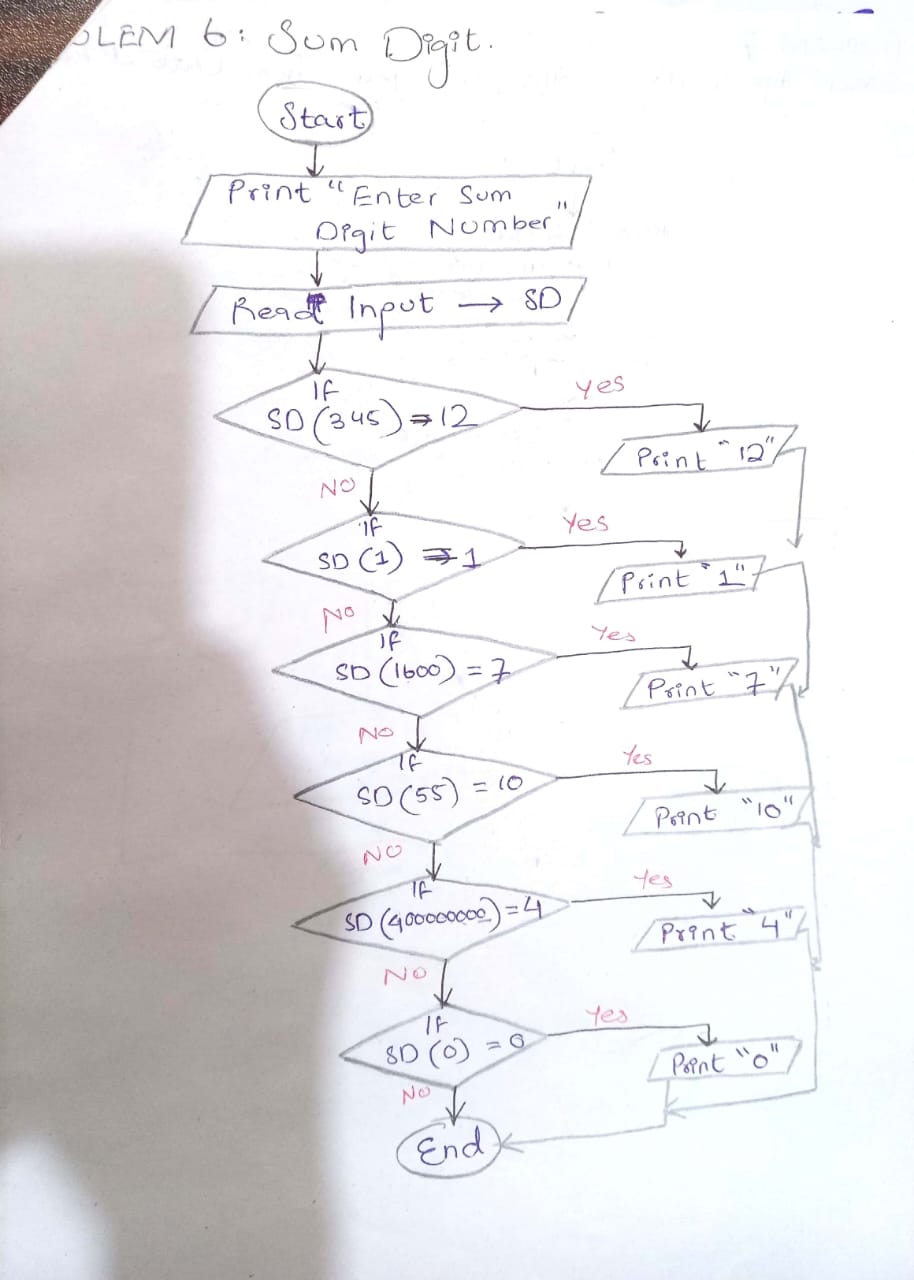 OLEM 6: Sum Digit.
Start
Print "Enter Sum
Digit Number"
Read Input → SD
If
SD (345) ⇒ 12
Yes
Print "12"
NO
If
SD (1) ⇒ 1
Yes
Print "1"
NO
If
SD (1600) = 7
Yes
Print "7"
NO
If
SD (55) = 10
Yes
Print "10"
NO
If
SD (400000000) = 4
Yes
Print "4"
NO
If
SD (0) = 0
Yes
Print "0"
NO
End